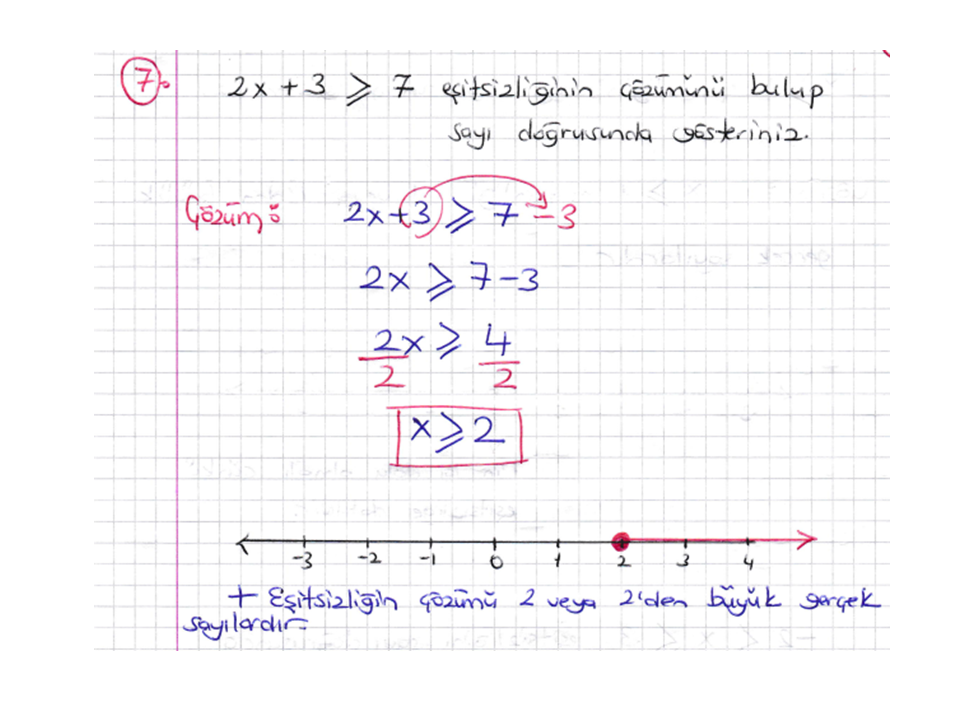 7. 2x + 3 ⩾ 7 eşitsizliğinin çözümünü bulup
sayı doğrusunda gösteriniz.
Çözüm: 2x+3 ⩾ 7 -3
2x ⩾ 7-3
2x ⩾ 4
2 2
x ⩾ 2
-3 -2 -1 0 1 2 3 4
+ Eşitsizliğin çözümü 2 veya 2'den büyük gerçek
sayılardır.